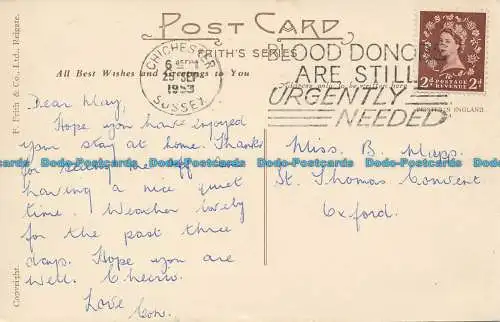 POST CARD
FRITH'S SERIES
All Best Wishes and Greetings to You
CHICHESTER
6 45PM
25 SEP
1953
SUSSEX
BLOOD DONORS
ARE STILL
URGENTLY
NEEDED
2D POSTAGE REVENUE 2D
PRINTED IN ENGLAND
Dear May,
Hope you have enjoyed
your stay at home. Thanks
for
having a nice quiet
time. Weather lovely
for the past three
days. Hope you are
well. Cheerio
Love
Con.
Miss. B. Mapp.
St. Thomas Convent
Oxford.
F. Frith & Co., Ltd., Reigate.
Copyright.